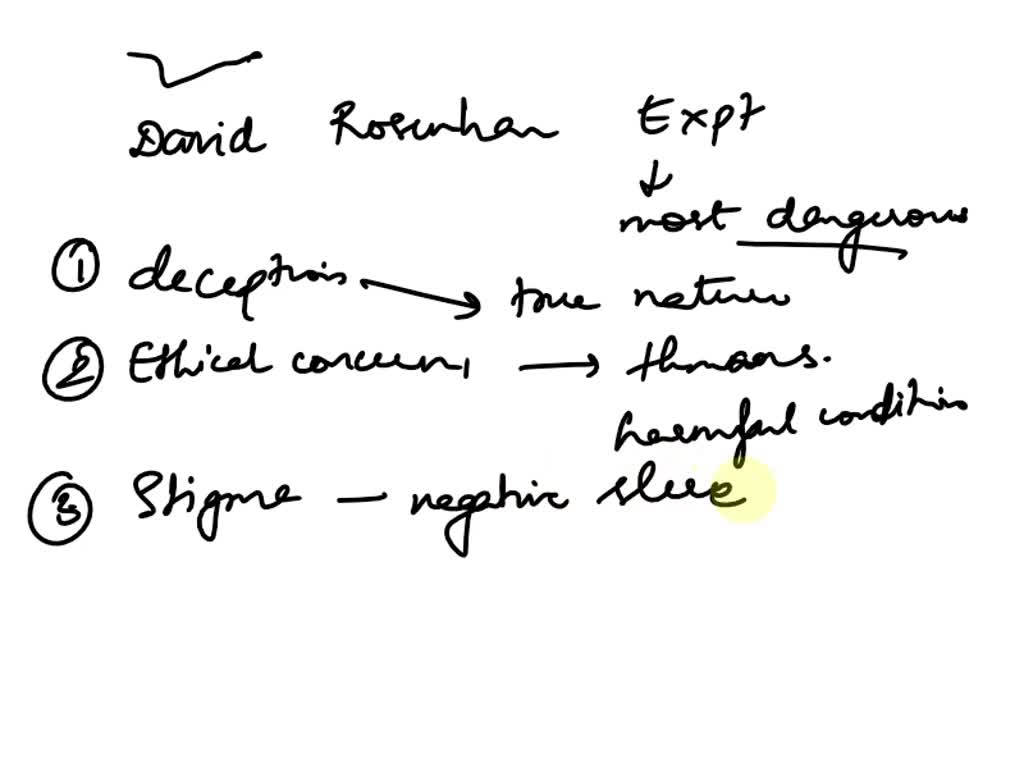 David Rosenhan Expt
↓
most dangerous
① deception → true nature
② Ethical concern → humans.
harmful conditions
③ Stigma — negative